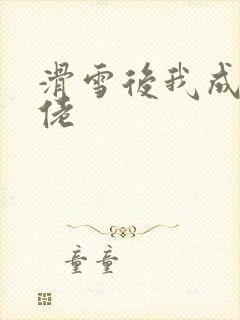 滑雪後我成
佬
童童